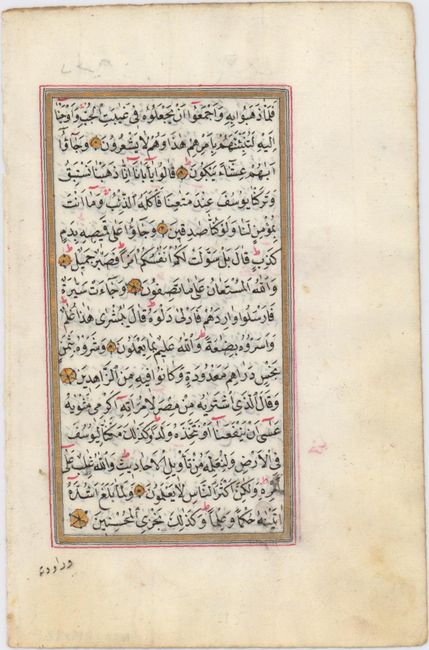 فَلَمَّا ذَهَبُوا بِهِ وَاَجْمَعُوا اَنْ يَجْعَلُوهُ فِى غَيَابَتِ الْجُبِّ وَاَوْحَيْنَا
اِلَيْهِ لَتُنَبِّئَنَّهُمْ بِاَمْرِهِمْ هٰذَا وَهُمْ لَا يَشْعُرُونَ وَجَاؤُا
اَبَاهُمْ عِشَاءً يَبْكُونَ قَالُوا يَا اَبَانَا اِنَّا ذَهَبْنَا نَسْتَبِقُ
وَتَرَكْنَا يُوسُفَ عِنْدَ مَتَاعِنَا فَاَكَلَهُ الذِّئْبُ وَمَا اَنْتَ
بِمُؤْمِنٍ لَنَا وَلَوْ كُنَّا صَادِقِينَ وَجَاؤُا عَلٰى قَمِيصِهِ بِدَمٍ
كَذِبٍ قَالَ بَلْ سَوَّلَتْ لَكُمْ اَنْفُسُكُمْ اَمْرًا فَصَبْرٌ جَمِيلٌ
وَاللّٰهُ الْمُسْتَعَانُ عَلٰى مَا تَصِفُونَ وَجَاءَتْ سَيَّارَةٌ
فَاَرْسَلُوا وَارِدَهُمْ فَاَدْلٰى دَلْوَهُ قَالَ يَا بُشْرٰى هٰذَا غُلَامٌ
وَاَسَرُّوهُ بِضَاعَةً وَاللّٰهُ عَلِيمٌ بِمَا يَعْمَلُونَ وَشَرَوْهُ بِثَمَنٍ
بَخْسٍ دَرَاهِمَ مَعْدُودَةٍ وَكَانُوا فِيهِ مِنَ الزَّاهِدِينَ
وَقَالَ الَّذِى اشْتَرٰيهُ مِنْ مِصْرَ لِامْرَاَتِهِ اَكْرِمِى مَثْوٰيهُ
عَسٰى اَنْ يَنْفَعَنَا اَوْ نَتَّخِذَهُ وَلَدًا وَكَذٰلِكَ مَكَّنَّا لِيُوسُفَ
فِى الْاَرْضِ وَلِنُعَلِّمَهُ مِنْ تَأْوِيلِ الْاَحَادِيثِ وَاللّٰهُ غَالِبٌ عَلٰى
اَمْرِهِ وَلٰكِنَّ اَكْثَرَ النَّاسِ لَا يَعْلَمُونَ وَلَمَّا بَلَغَ اَشُدَّهُ
اٰتَيْنَاهُ حُكْمًا وَعِلْمًا وَكَذٰلِكَ نَجْزِى الْمُحْسِنِينَ
وراودته